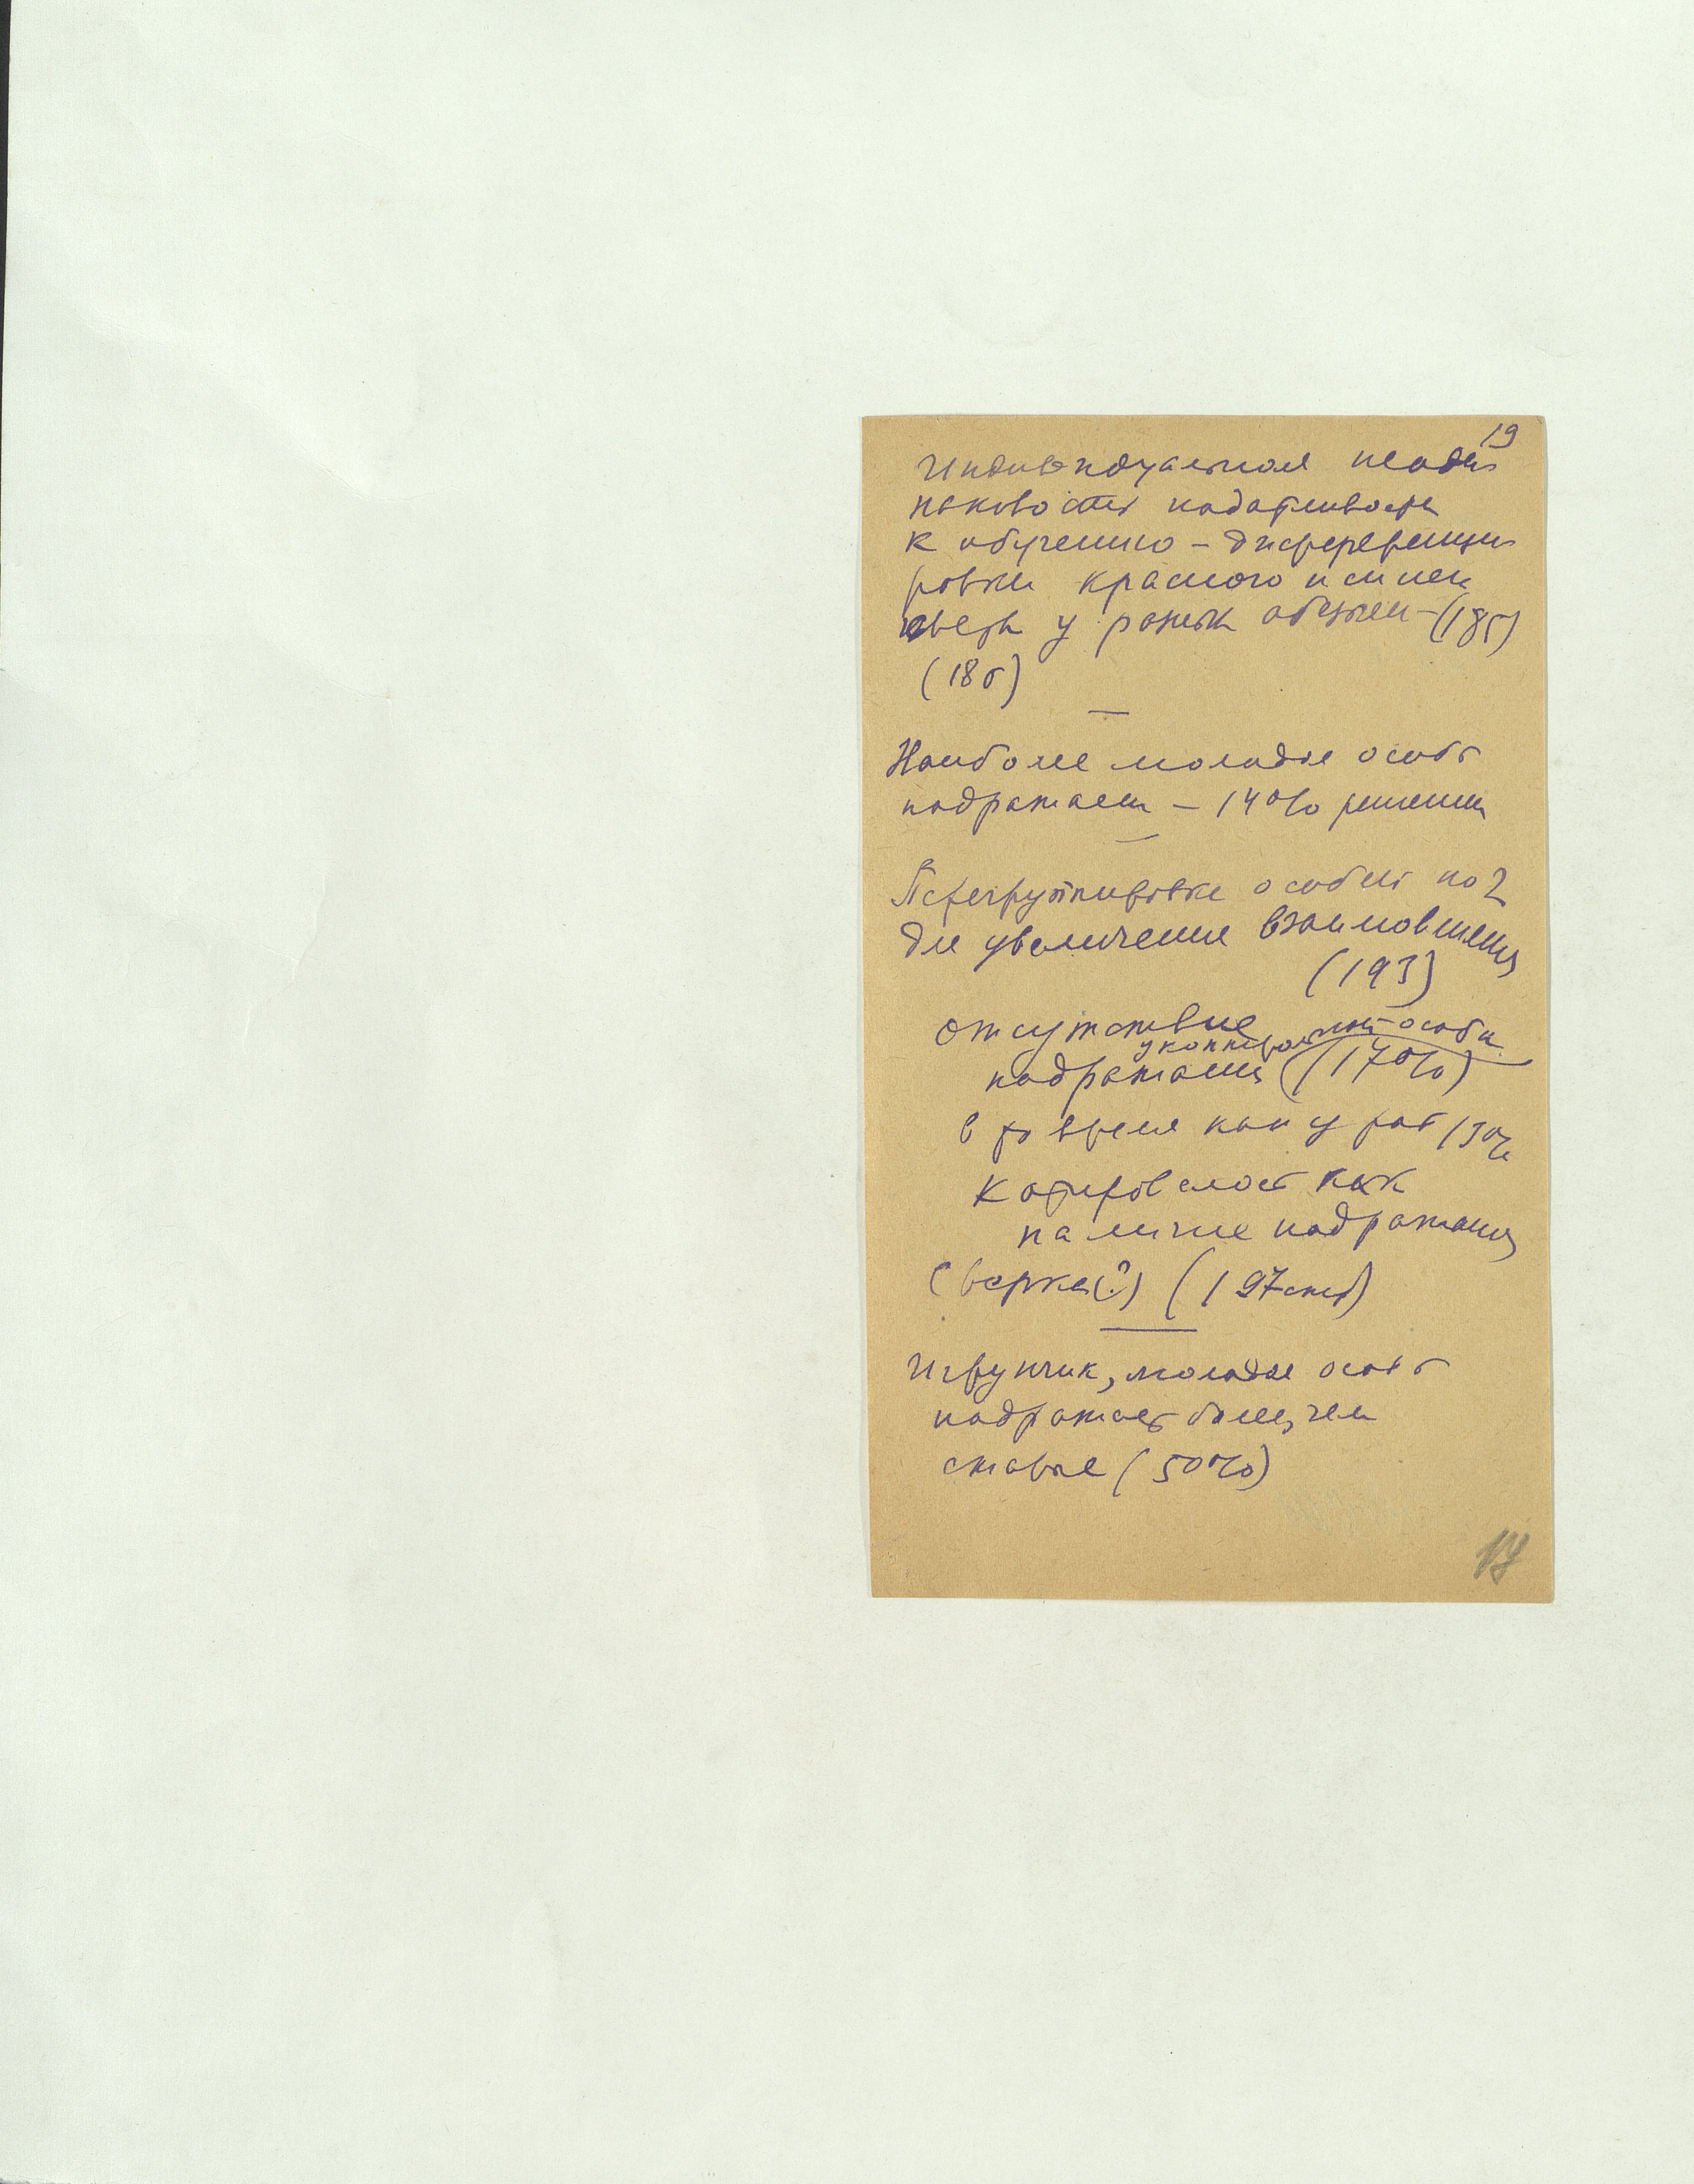 19
Индивидуальная неоди
наковость податливости
к обучению – диференци
ровки красного и синего
цвета у разных обезьян – (185)
(185)
Наиболее молодые особ
подражаем – 14% решений
Перегруппировке особей по 2
для увеличения взаимовлияния
(193)
Отсутствие
у контрольной особи
подражания (17%)
в то время как у 13%
как
наличие подражания
(1 97 стр)
Игрунчик, молодые особ
подражает более, чем
старые (50%)
17